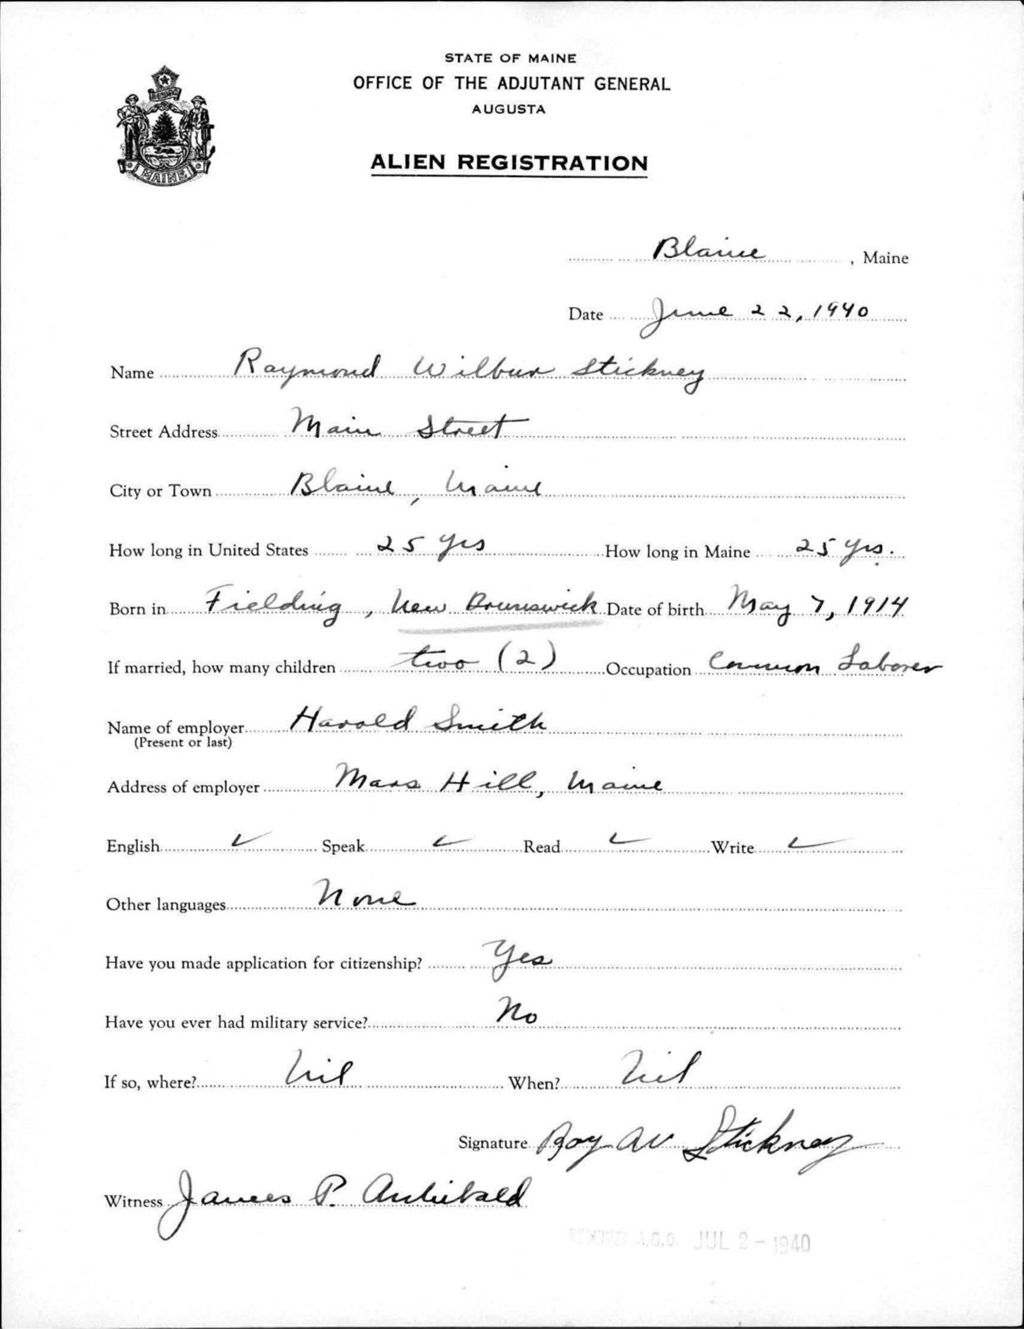 STATE OF MAINE
OFFICE OF THE ADJUTANT GENERAL
AUGUSTA
ALIEN REGISTRATION
MAINE
Blaine, Maine
Date June 22, 1940
Name Raymond Wilbur Stickney
Street Address Main Street
City or Town Blaine, Maine
How long in United States 25 yrs How long in Maine 25 yrs.
Born in Fielding, New Brunswick Date of birth May 7, 1914
If married, how many children two (2) Occupation Common Laborer
Name of employer Harold Smith
(Present or last)
Address of employer Mars Hill, Maine
English ✓ Speak ✓ Read ✓ Write ✓
Other languages None
Have you made application for citizenship? Yes
Have you ever had military service? No
If so, where? Nil When? Nil
Signature Roy W Stickney
Witness James P. Archibald
A.G.O. JUL 2 - 1940